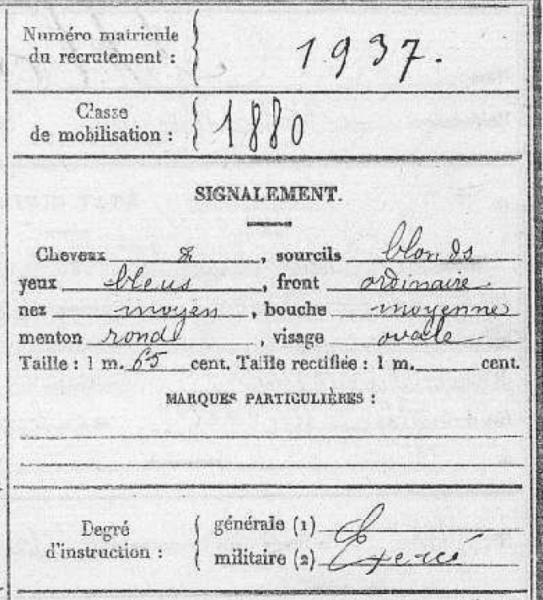 Numéro matricule
du recrutement : 1937.
Classe
de mobilisation : 1880
SIGNALEMENT.
Cheveux &, sourcils blonds
yeux bleus, front ordinaire
nez moyen, bouche moyenne
menton rond, visage ovale
Taille : 1 m. 65 cent. Taille rectifiée : 1 m. cent.
MARQUES PARTICULIÈRES :
Degré
d'instruction :
générale (1)
militaire (2) Exercé